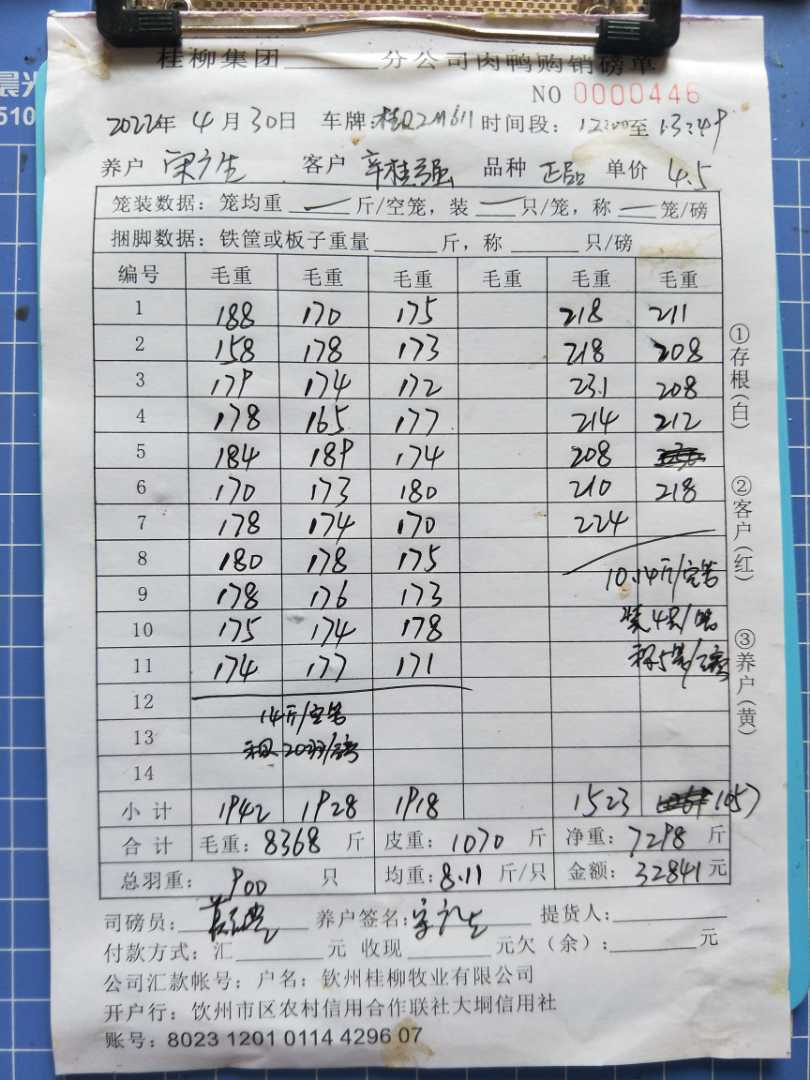 桂柳集团______分公司肉鸭购销磅单
NO 0000446
2022年 4月30日 车牌: 时间段: 12:00至13:49
养户 宋广生 客户 辛桂强 品种 正品 单价 4.5
笼装数据: 笼均重 — 斤/空笼, 装 — 只/笼, 称 — 笼/磅
捆脚数据: 铁筐或板子重量______斤, 称______只/磅
编号 毛重 毛重 毛重 毛重 毛重 毛重
1 188 170 175 218 211
2 158 178 173 218 208
3 179 174 172 231 208
4 178 165 177 214 212
5 184 189 174 208
6 170 173 180 210 218
7 178 174 170 224
8 180 178 175
9 178 176 173 10.14斤/空笼
10 175 174 178 装4只/笼
11 174 177 171 称5笼/磅
12 14斤/空笼
13 20羽/磅
14
小计 1942 1928 1918 1523 1057
合计 毛重: 8368 斤 皮重: 1070 斤 净重: 7298 斤
总羽重: 900 只 均重: 8.11 斤/只 金额: 32841 元
司磅员: 养户签名: 宋广生 提货人:
付款方式: 汇______元 收现______元欠(余):______元
公司汇款帐号: 户名: 钦州桂柳牧业有限公司
开户行: 钦州市区农村信用合作联社大垌信用社
账号: 8023 1201 0114 4296 07
①存根(白)
②客户(红)
③养户(黄)
晨光
510